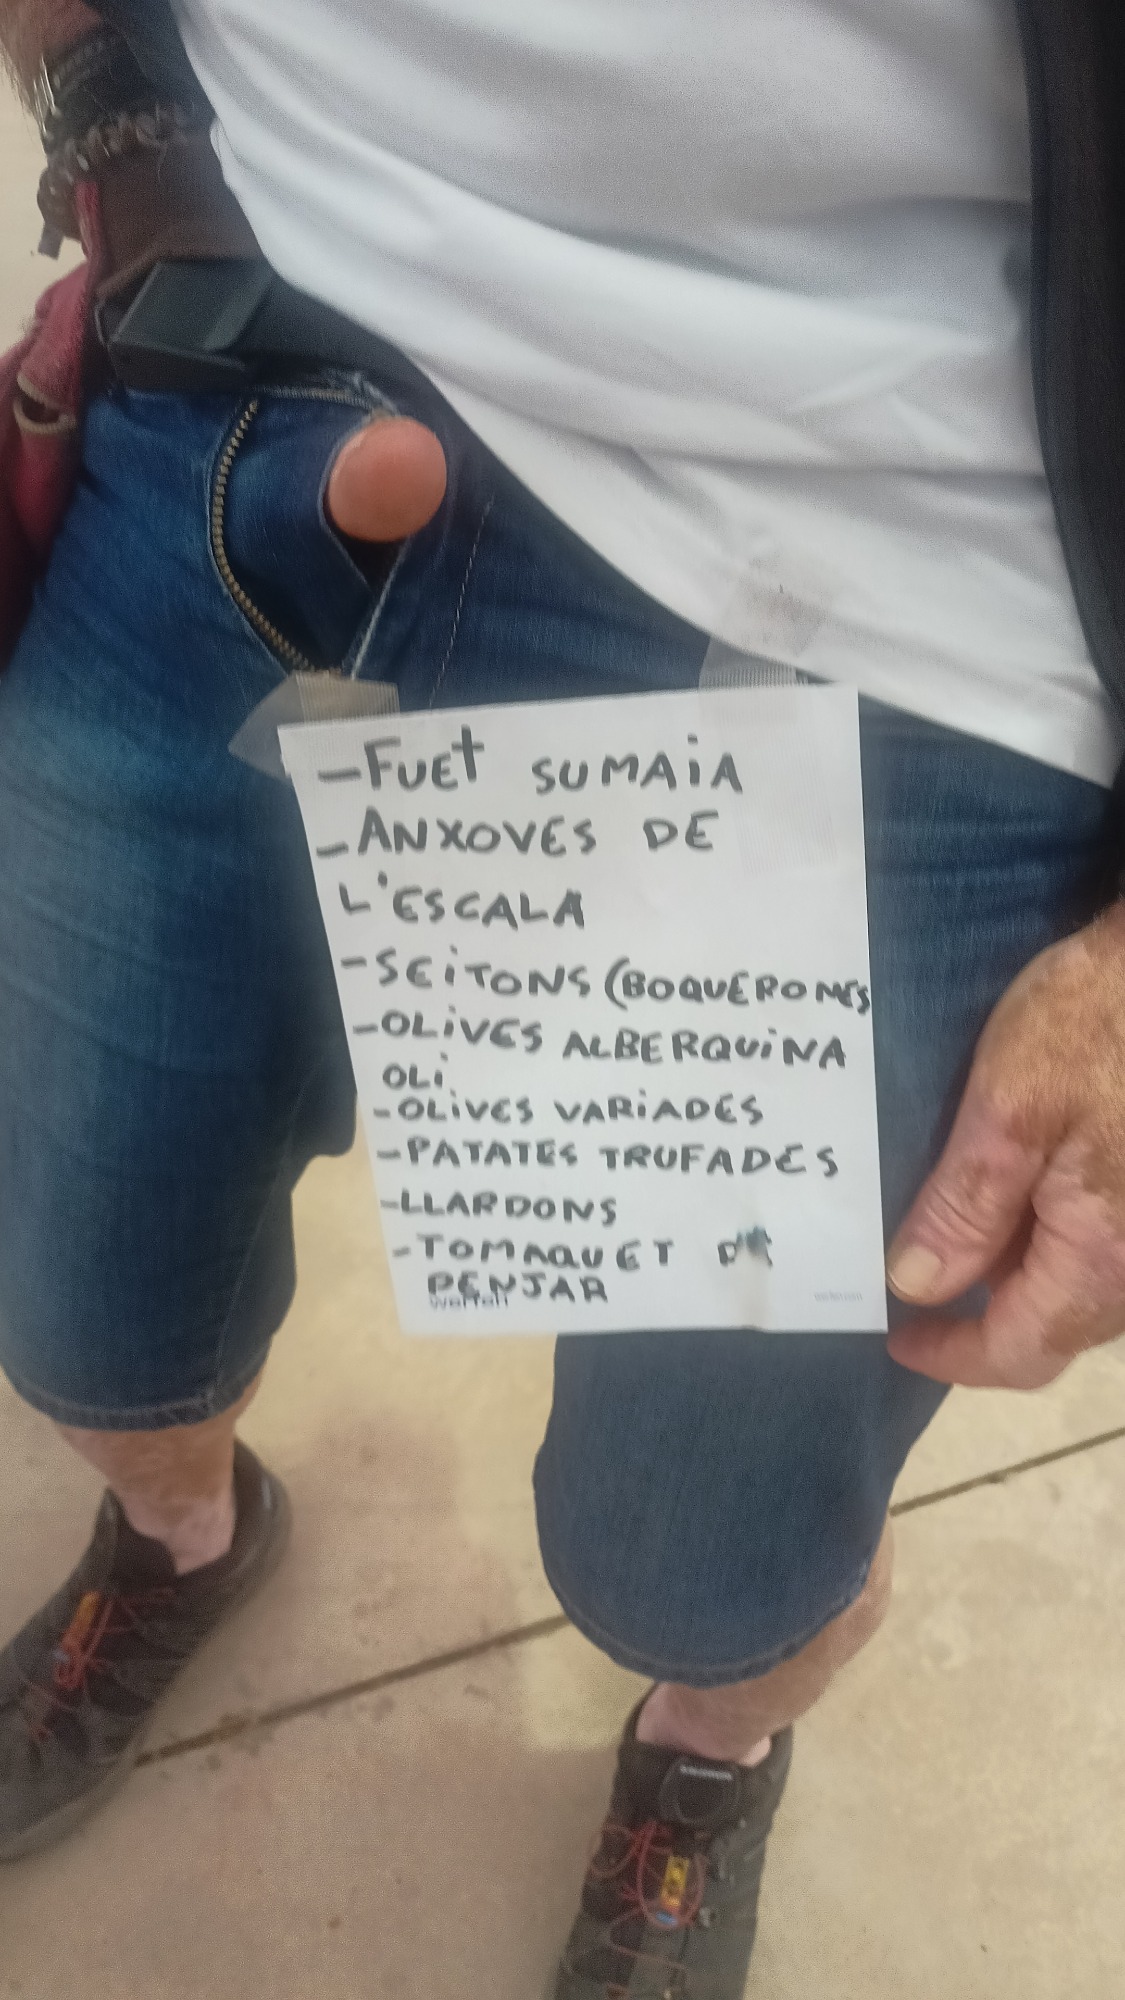 -FUET SUMAiA
-ANXOVES DE
L'ESCALA
-SEiTONS (BOQUERONES
-OLiVES ALBERQUiNA
OLi
-OLiVES VARiADES
-PATATES TRUFADES
-LLARDONS
-TOMAQUET DE
PENJAR